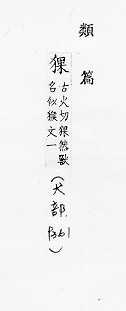 類篇
猓
古火切猓然獸
名似猴文一
(犬部.
P361)